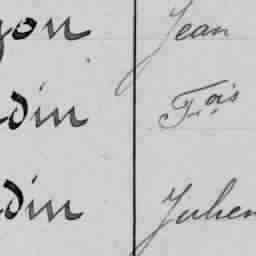 yon Jean
din Fois
din Julien